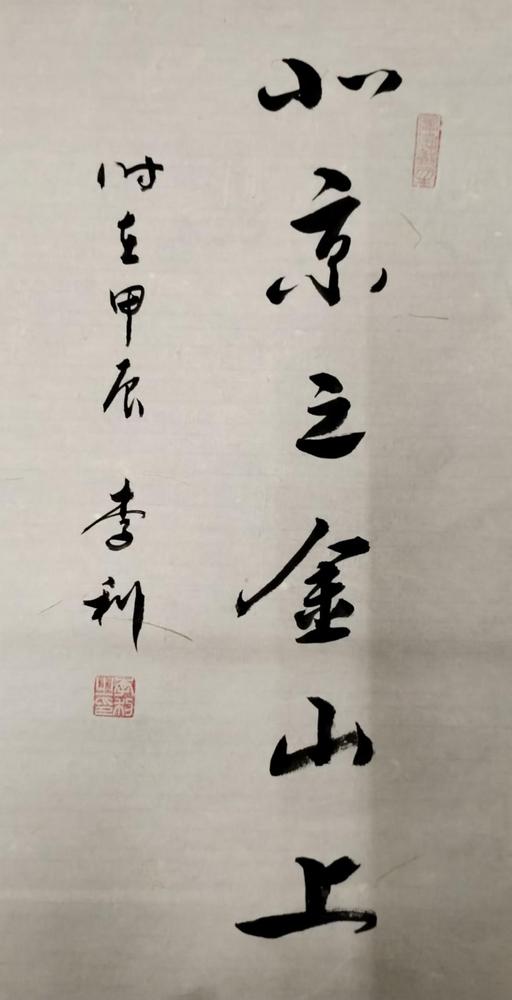 北京之金山上
时在甲辰 李利